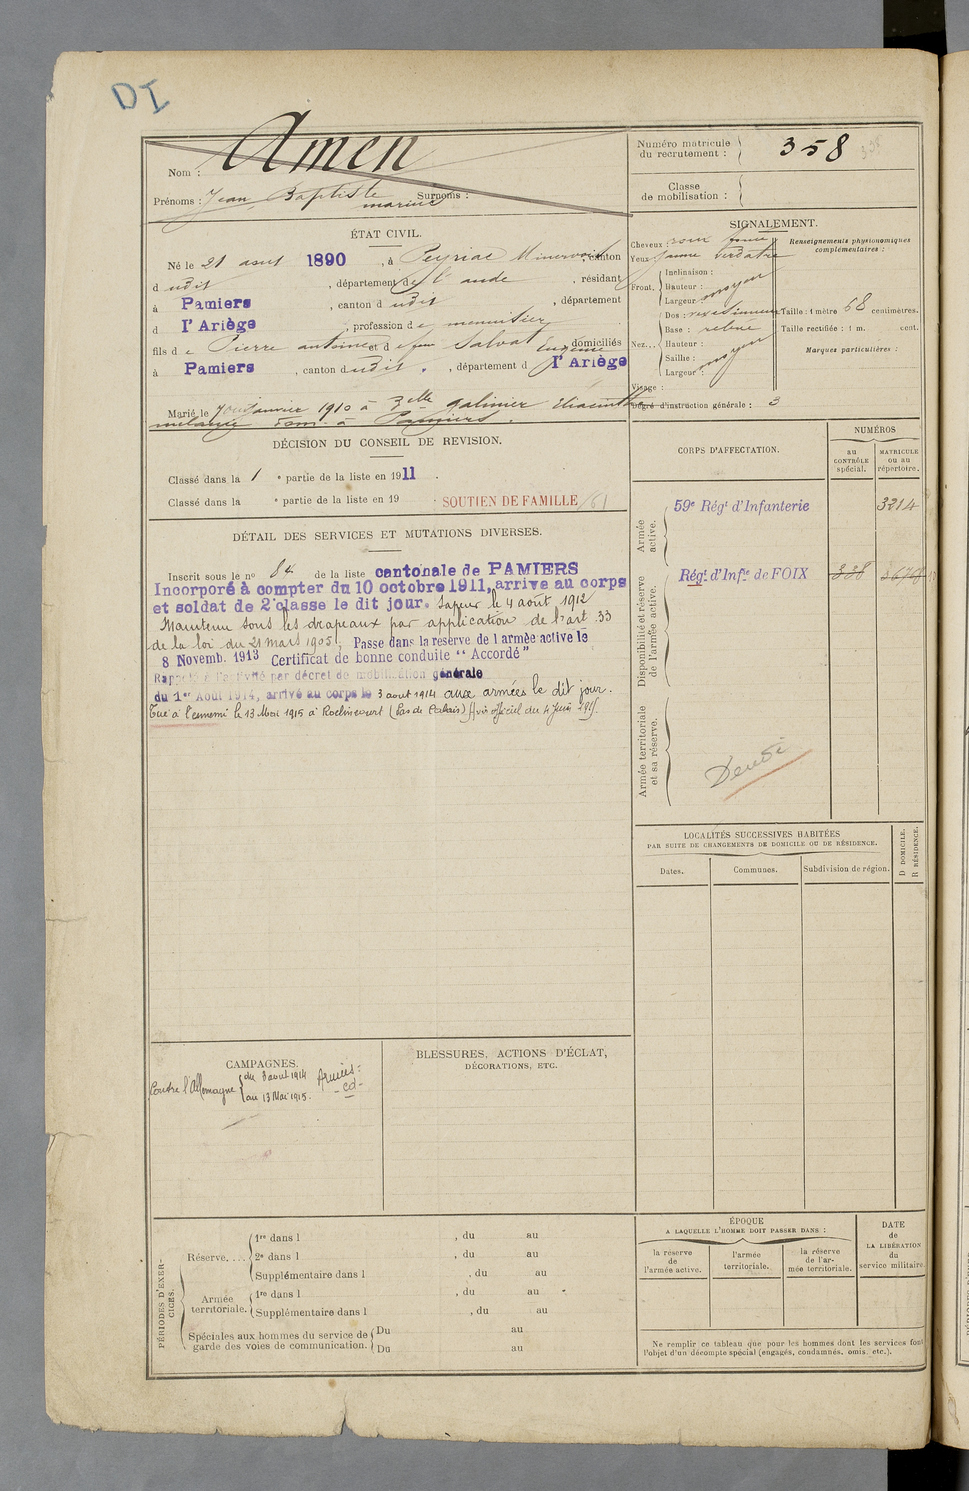 DI
Nom : Amen
Prénoms : Jean Baptiste Surnoms :
marius
Numéro matricule
du recrutement : 358
Classe
de mobilisation :
ÉTAT CIVIL.
Né le 21 aout 1890, à Peyriac Minervois, canton
d udit, département de l'aude, résidant
à Pamiers, canton d udit, département
d l'Ariège, profession de menuisier
fils de Pierre antoine et de Salvat Eugénie domiciliés
à Pamiers, canton d udit, département d l'Ariège
Marié le janvier 1910 à Delle galinier
mélanie dom. à Pamiers.
SIGNALEMENT.
Cheveux :
Yeux jaune verdatre
Front. Inclinaison :
Hauteur : moyen
Largeur :
Dos :
Nez... Base :
Hauteur :
Saillie : moyen
Largeur :
Visage :
Degré d'instruction générale : 3
Renseignements physionomiques
complémentaires :
Taille : 1 mètre 68 centimètres.
Taille rectifiée : 1 m. cent.
Marques particulières :
DÉCISION DU CONSEIL DE REVISION.
Classé dans la 1 e partie de la liste en 1911.
Classé dans la e partie de la liste en 19 . SOUTIEN DE FAMILLE
DÉTAIL DES SERVICES ET MUTATIONS DIVERSES.
Inscrit sous le no 84 de la liste cantonale de PAMIERS
Incorporé à compter du 10 octobre 1911, arrive au corps
et soldat de 2e classe le dit jour. Sapeur le 4 août 1912
Maintenu sous les drapeaux par application de l'art 33
de la loi du 21 mars 1905. Passe dans la reserve de l armée active le
8 Novemb. 1913 Certificat de bonne conduite "Accordé"
Rappelé à l'activité par décret de mobilisation générale
du 1er Août 1914, arrivé au corps le 3 aout 1914 aux armées le dit jour.
Tué à l'ennemi le 13 Mai 1915 à Roclincourt (Pas de Calais) Avis officiel du 4 Juin 1915.
CORPS D'AFFECTATION.
NUMÉROS
au
CONTRÔLE
spécial.
MATRICULE
ou au
répertoire.
Armée
active.
59e Régt d'Infanterie 3214
Disponibilité et réserve
de l'armée active.
Régt d'Infie de FOIX 338
Armée territoriale
et sa réserve.
LOCALITÉS SUCCESSIVES HABITÉES
PAR SUITE DE CHANGEMENTS DE DOMICILE OU DE RÉSIDENCE.
D DOMICILE.
R RÉSIDENCE.
Dates. Communes. Subdivision de région.
CAMPAGNES.
Contre l'Allemagne du 3 aout 1914
au 13 Mai 1915.
Armées
BLESSURES, ACTIONS D'ÉCLAT,
DÉCORATIONS, ETC.
PÉRIODES D'EXER-
CICES.
Réserve.... 1re dans l , du au
2e dans l , du au
Supplémentaire dans l , du au
Armée
territoriale. 1re dans l , du au
Supplémentaire dans l , du au
Spéciales aux hommes du service de
garde des voies de communication. Du au
Du au
ÉPOQUE
A LAQUELLE L'HOMME DOIT PASSER DANS :
la réserve
de
l'armée active.
l'armée
territoriale.
la réserve
de l'ar-
mée territoriale.
DATE
de
LA LIBÉRATION
du
service militaire.
Ne remplir ce tableau que pour les hommes dont les services font
l'objet d'un décompte spécial (engagés, condamnés, omis, etc.).